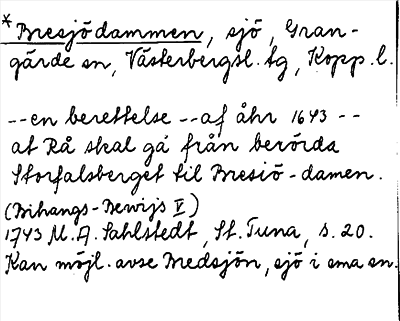 *Bresjödammen, sjö, Gran-
gärde sn, Västerbergsl. tg, Kopp. l.
--en berettelse --af åhr 1643 --
at Rå skal gå från berörda
Storfalsberget til Bresiö-damen.
(Bihangs-Bewijs V)
1743 M. A. Sahlstedt, St. Tuna, s. 20.
Kan möjl. avse Bredsjön, sjö i sma sn.